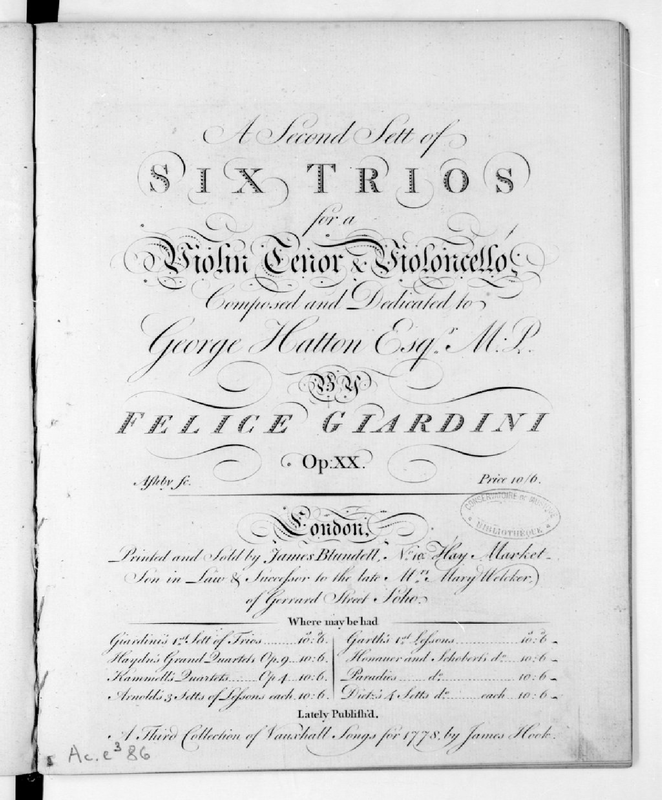 A Second Sett of
SIX TRIOS
for a
Violin Tenor & Violoncello,
Composed and Dedicated to
George Hatton Esqr. M:P.
BY
FELICE GIARDINI
Op:XX.
Ashby sc. Price 10/6.
CONSERVATOIRE DE MUSIQUE
BIBLIOTHÈQUE
London,
Printed and Sold by James Blundell, No. 10. Hay Market
Son in Law & Successor to the late Mrs. Mary Welcker,
of Gerrard Street Soho.
Where may be had
Giardini's 1st Sett of Trios 10s: 6d.
Haydn's Grand Quartets Op. 9 10:6.
Kammell's Quartets Op 4 10:6.
Arnold's 3 Setts of Lessons each 10:6.
Garth's 1st Lessons 10s: 6d
Honauer and Schoberts do. 10:6
Paradies do. 10:6
Dito's 4 Setts do. each 10:6
Lately Publish'd.
A Third Collection of Vauxhall Songs for 1778, by James Hook.
Ac.e3 86